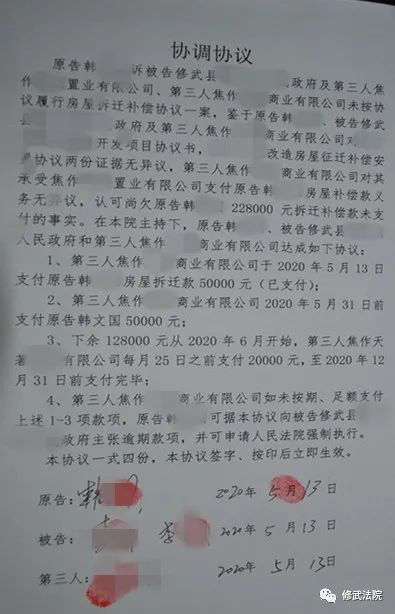 协调协议
原告韩 诉被告修武县 政府及第三人焦
作 置业有限公司、第三人焦作 商业有限公司未按协
议履行房屋拆迁补偿协议一案，鉴于原告韩 、被告修武
县 政府及第三人焦作 商业有限公司对
开发项目协议书， 改造房屋征迁补偿安
协议两份证据无异议，第三人焦作 商业有限公司对其
承受焦作 置业有限公司支付原告韩 房屋补偿款义
务无异议，认可尚欠原告韩 228000元拆迁补偿款未支
付的事实。在本院主持下，原告韩 、被告修武县
人民政府和第三人焦作 商业有限公司达成如下协议：
1、第三人焦作 商业有限公司于2020年5月13日
支付原告韩 房屋拆迁款50000元（已支付）；
2、第三人焦作 商业有限公司2020年5月31日前
支付原告韩文国50000元；
3、下余128000元从2020年6月开始，第三人焦作天
著 有限公司每月25日之前支付20000元，至2020年12
月31日前支付完毕；
4、第三人焦作 商业有限公司如未按期、足额支付
上述1-3项款项，原告韩 可据本协议向被告修武县
政府主张逾期款项，并可申请人民法院强制执行。
本协议一式四份，本协议签字、按印后立即生效。
原告： 2020年5月13日
被告： 李 2020年5月13日
第三人： 2020年5月13日
修武法院